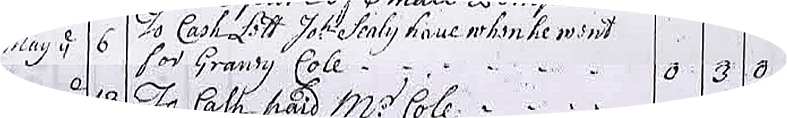 May ye 6 To Cash Lett Jon Sealy have when he went
for Granny Cole - - - - - - 0 3 0
To Cash paid Mr Cole - - - -